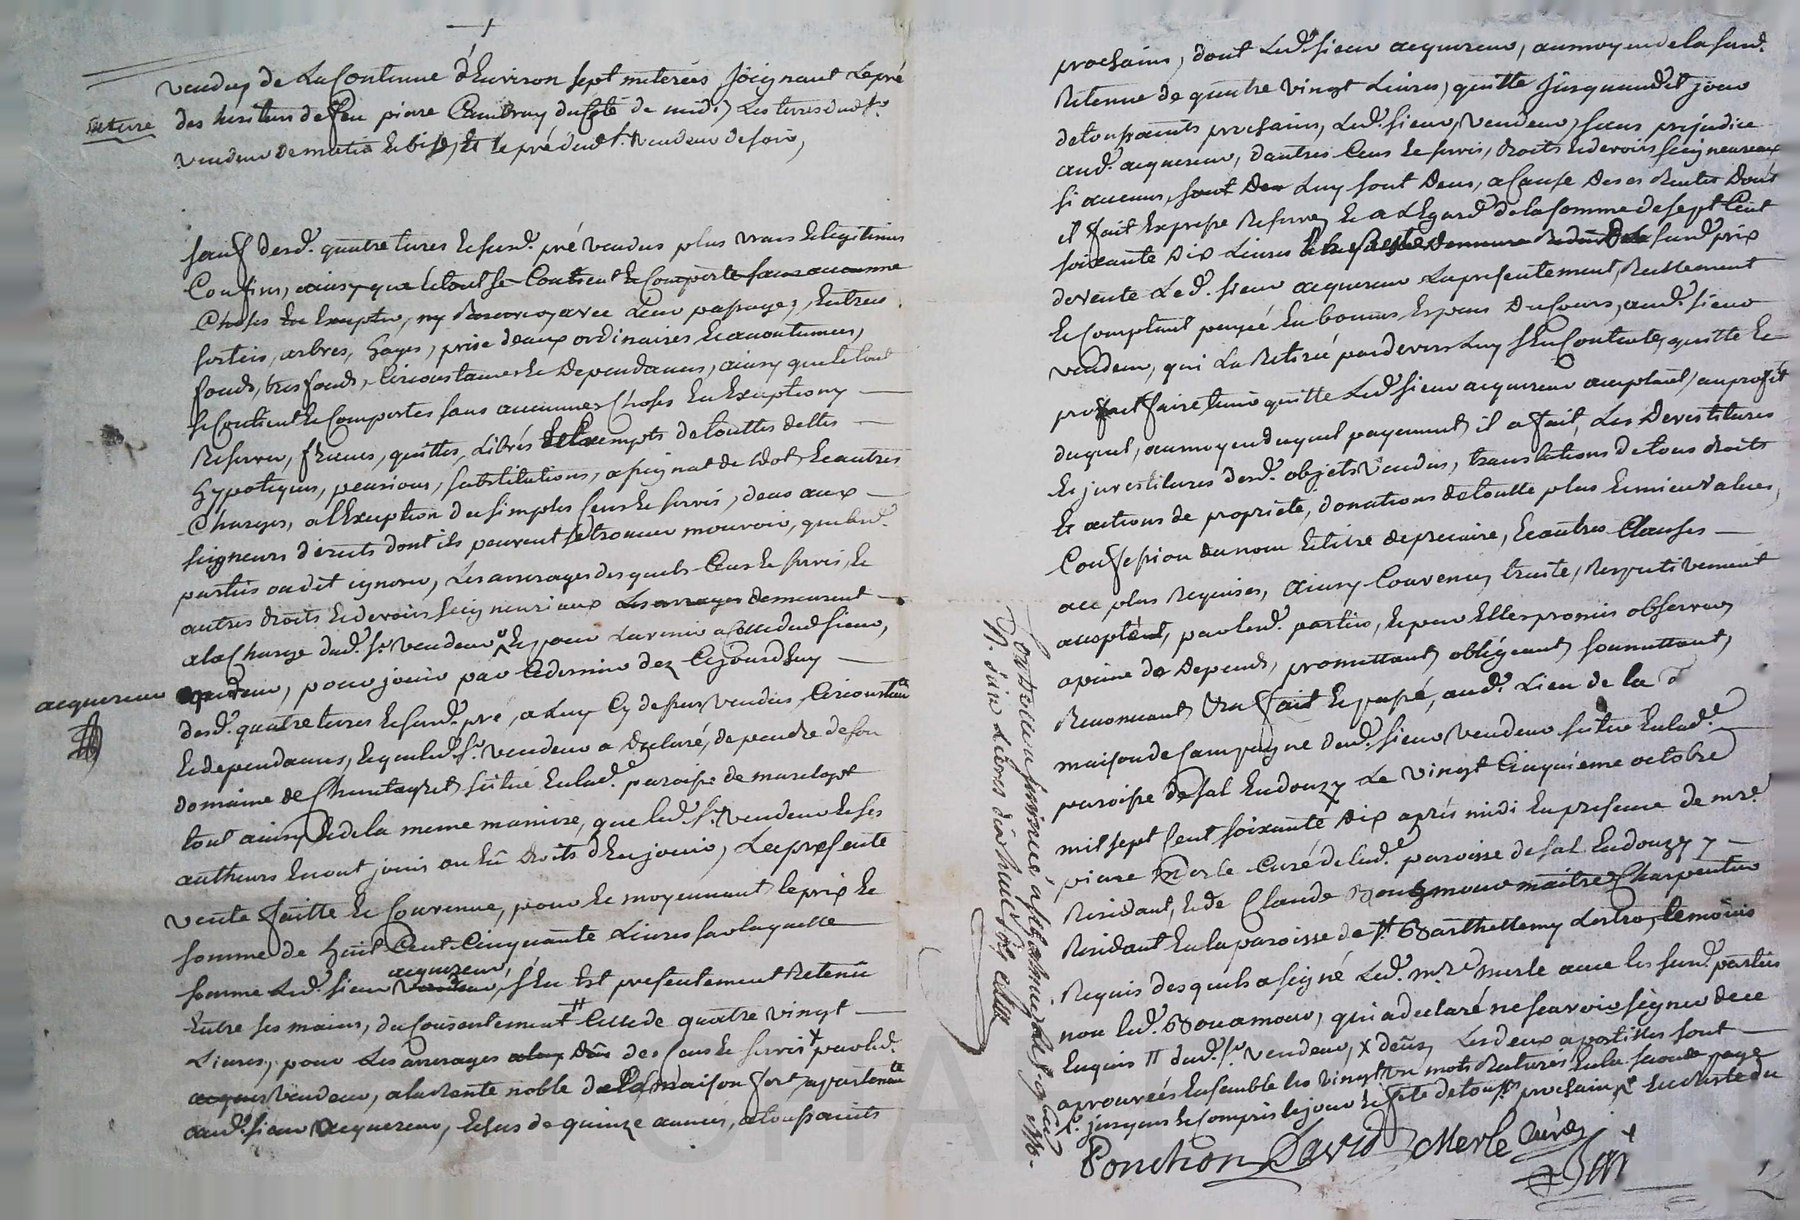 vendus de La Contenue d'Environ sept meterées Joignant Le pré
des heritiers de feu pierre Cambray du Coté de midi, Les terres dud. sr.
Vendeur De matin et bise, Et le pré dud. sr. Vendeur de soir,
sauf desd. quatre terres et susd. pré vendus plus vrais et legitimes
Confins, ainsy que le tout se Contient et Comporte sans aucunne
Choses En Exepter, ny Reserver, avec Leur passages, Entrées
sorties, arbres, hayes, prise d'eaux ordinaires et accoutumées,
fonds, tres fonds, Circonstances et Dependances, ainsy que le tout
se Contient et Comportes sans aucunnes Choses En Exeptions
Reserver, franes, quittes, Libres et Exempts de touttes dettes
hypoteques, pensions, substitutions, assignat de dot, et autres
Charges, a l'Exeption des simples Cens et servis, deus aux
seigneurs directs dont ils peuvent se trouver mouvoir, que lesd.
parties ont dit ignorer, Les arrerages des quels Cens et servis, et
autres droits et devoirs seigneuriaux Les arrerages demeurent
a la Charge dud. sr. Vendeur, Et pour Lavenir a Celle dud. sieur,
acquereur
pour jouir par Ce dernier dez Cejourdhuy
desd. quatre terres et susd. pré, a Luy Cy dessus vendus, Circonstances
et dependances, Et que led. sr. vendeur a Declaré, dependre de son
domaine de situé en lad. paroisse de marclopt
tout ainsy et de la meme maniere, que led. sr. Vendeur et ses
autheurs En ont joui ou Eü droits d'En jouir, La presente
vente faitte et Convenue, pour et moyennant le prix et
somme de huit Cent Cinquante Livres sur laquelle
acquereur,
somme Led. sieur Vendeur, s'En Est presentement Retenü
Entre ses mains, du Consentement # Celle de quatre vingt
Livres, pour Les arrerages des Cens et servis x par led.
Vendeur, a la Rente noble de la maison fort appartenante
aud. sieur acquereur, et sus de quinze années, a toussaints
prochains, dont Led. sieur acquereur, au moyen de la susd.
Retenue de quatre Vingt Livres, quitte Jusquaudit jour
de toussaints prochains, Led. sieur, Vendeur, sans prejudice
aud. acquereur, d'autres Cens et servis, droits et devoirs seigneureaux
si aucuns, sont Deu Luy sont Deus, a Cause De ses Rentes Dont
il fait Expresse Reserve, Et a L'Egard de la somme de sept Cent
soixante Dix Livres susd. prix
de vente Led. sieur acquereur La presentement, Reellement
et Comptant payée En bonnes Especes Du Cours, aud. sieur
vendeur, qui La Retirée par devers Luy s'En Contente, quitte Et
promet faire tenir quitte Led. sieur acquereur acceptant, au profit
duquel, au moyen duquel payement, il a fait, Les Devestitures
Et jnvestitures desd. objets Vendus, translations de tous droits
Et actions de proprieté, donations de toutte plus et mieux values,
Confession du nom et titre de precaire, Et autres Clauses
au plus Requises, Ainsy Convenu, traité, Respectivement
accepté, par lesd. parties, Et par Elles promis observer
a peine de Depends, promettant, obligeant, soumettant,
Renonceant, Vu fait Et passé, aud. Lieu de la
maison de Campagne dud. sieur Vendeur situé En lad.
paroisse De sal En donzy Le Vingt Cinquiéme octobre
mil sept Cent soixante Dix aprés midi En presence de mre.
pierre Merle Curé de lad. paroisse de sal En donzy y
Residant, Et de Claude Bonamour maitre Charpentier
Residant En la paroisse de st. Barthellemy Lestra, temoins
Requis des quels a signé Led. mre. merle avec les susd. parties
non led. Bonamour, qui a declaré ne scavoir signer de ce
Enquis # dud. sr. Vendeur, x deües, Les deux apostilles sont
aprouvées Ensemble les vingt un mots Ratures En la seconde page
jusques et Compris le jour et fete de touss. prochain
Ponchon David Merle Curé